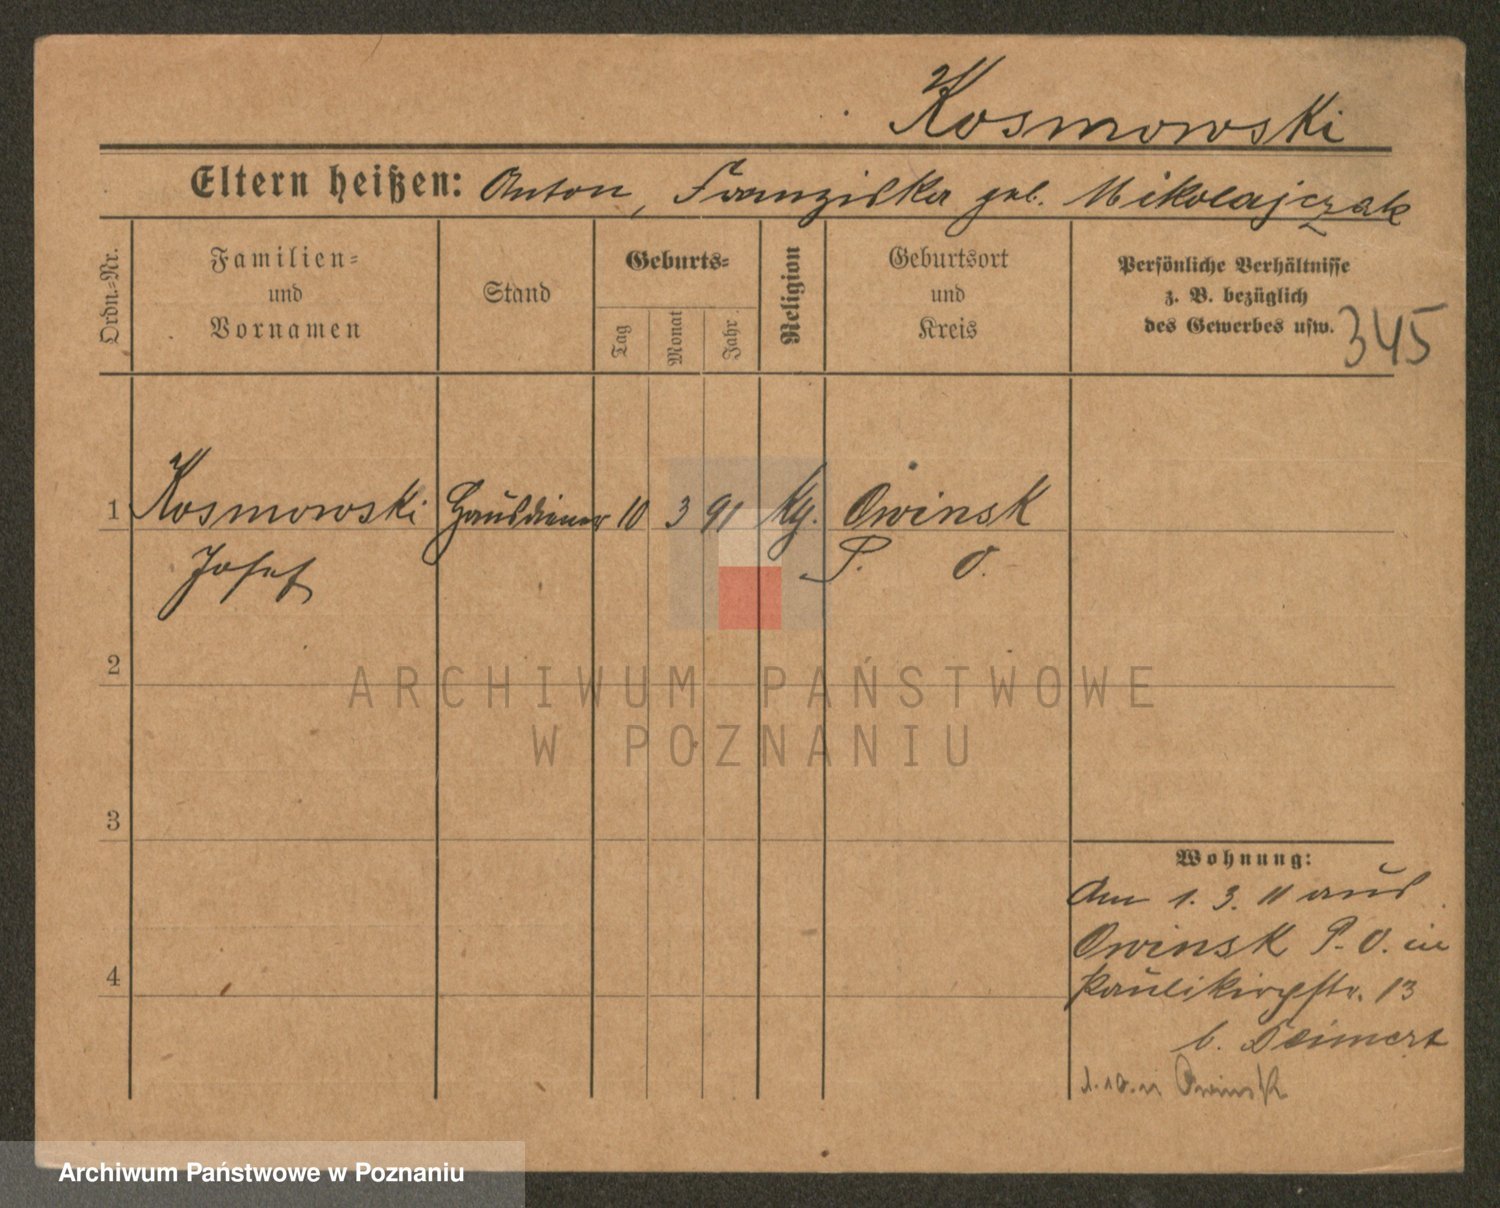 Kosmowski
Eltern heißen: Anton, Franziska geb. Mikolajczak
Ordn.-Nr.
Familien-
und
Vornamen
Stand
Geburts-
Tag
Monat
Jahr.
Religion
Geburtsort
und
Kreis
Persönliche Verhältnisse
z. B. bezüglich
des Gewerbes usw.
345
1 Kosmowski Hausdiener 10 3 91 Kg. Owinsk
Josef P. O.
2
ARCHIWUM PAŃSTWOWE
W POZNANIU
3
Wohnung:
Am 1. 3. 11 aus
Owinsk P. O. in
4
Paulikirchstr. 13
b. Deimert
Owinsk
Archiwum Państwowe w Poznaniu